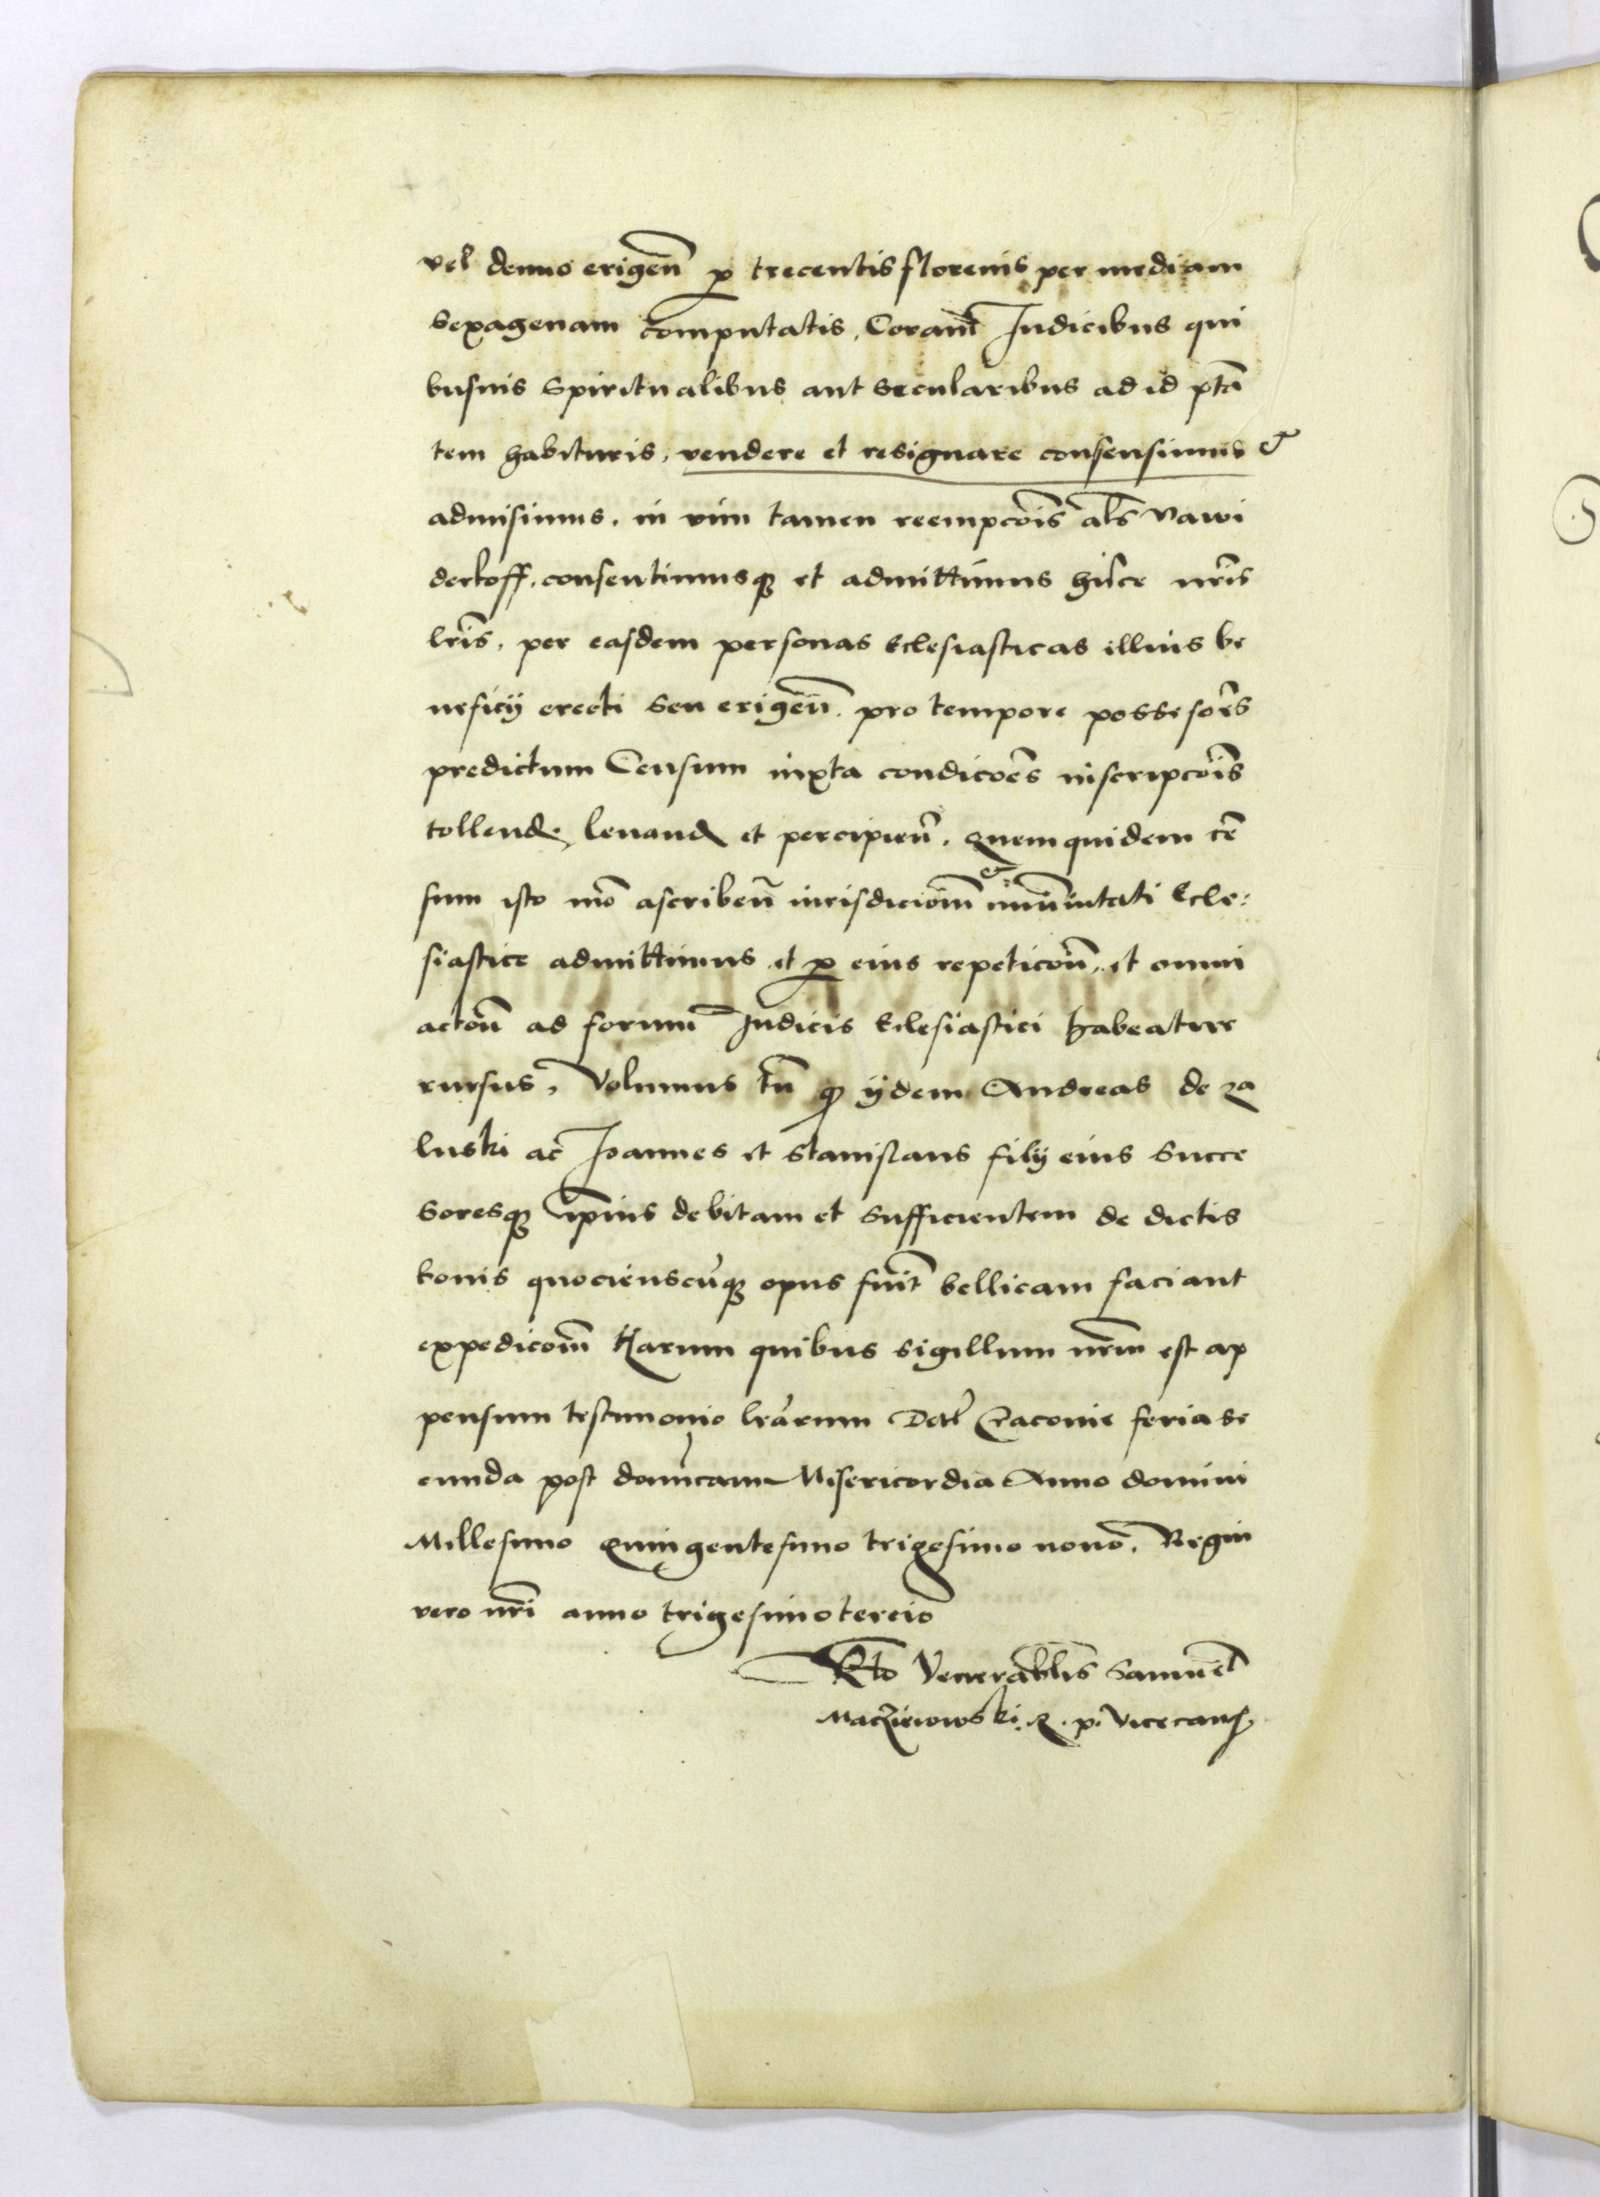 vel denuo erigen̄ p trecentis florenis per mediam
Sexagenam computatis. Coram Iudicibus qui
busuis Spiritualibus aut Secularibus ad id ptā
tem habituris, vendere et resignare consensimus &
admisimus. in vim tamen reempcōis al̄s Nawi
derkoff. consentimusq et admittimus hīsce nr̄is
lr̄is. per easdem personas Eclesiasticas illius be
neficij erecti Seu erigen̄. pro tempore possesor̄s
predictum Censum iuxta condicōes inscripcōis
tollend. leuand et percipien̄. Quem quidem cē
sum isto mō ascriben̄ iurisdiciōni & im̄unitati Ecle:
siastice admittimus et p eius repeticōn̄. et omni
actōn̄ ad forum Iudicis Eclesiastici habeatur
rursus, Volumus tn̄ q ijdem Andreas de za
luski ac Ioannes et Stanislaus filij eius Succe
soresq ip̄ius debitam et Sufficientem de dictis
bonis quocienscūq opus fuit̄ bellicam faciant
expedicōm̄ Harum quibus sigillum nr̄m est ap
pensum testimonio lr̄arum Dat̄ Cracouie feria se
cunda post dom̄icam Misericordia Anno domini
Millesimo Quingentesimo trigesimo nono. Regni
vero nr̄i anno trigesimotercio
Rlto Venerabl̄is Samuel̄
Macziewowski. R. p. Vicecanc